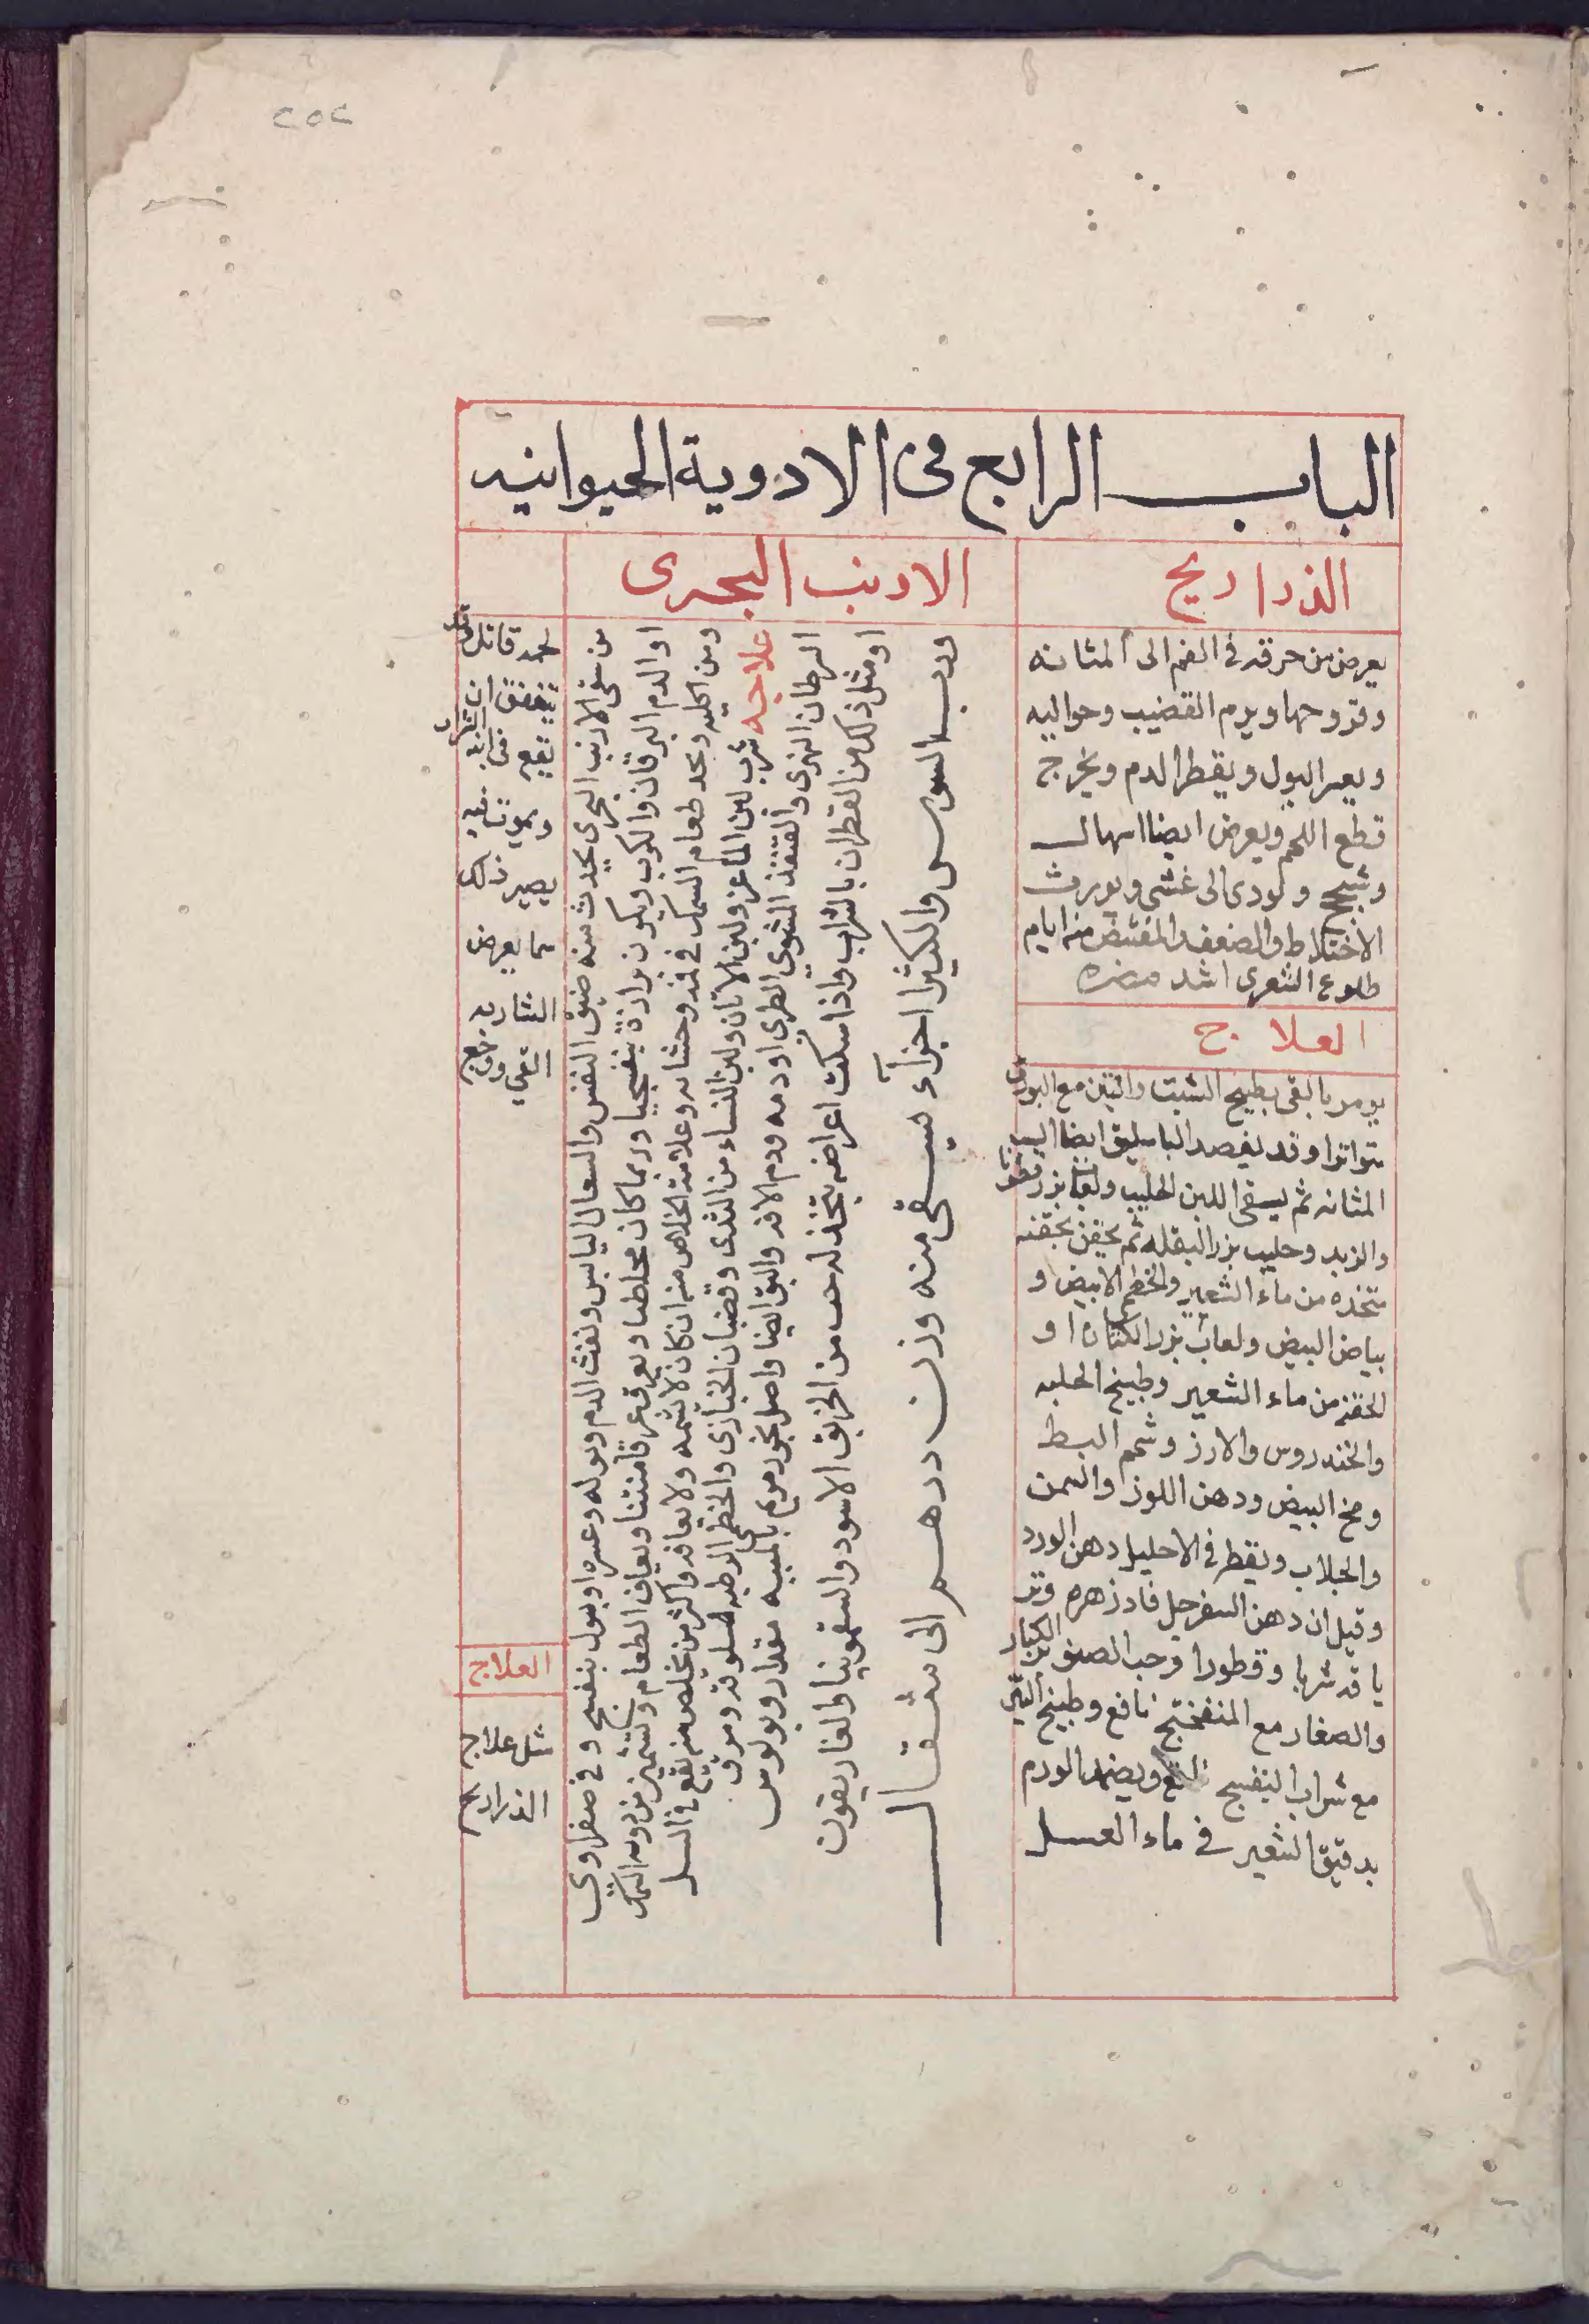 ٢٥٢
الباب الرابع فى الادوية الحيوانيه
الذراريح
يعرض من حرقه فى الفم الى المثانه
وقروحها ويرم القضيب وحواليه
ويعسر البول ويقطر الدم ويخرج
قطع اللحم ويعرض ايضا اسهال
وسحج وتودى الى غشى ويورث
الاختلاط والضعف والمقتبض منه ايام
طلوع الشعرى اشد مضره
العلاج
يومر بالقى بطبيخ الشبت والتين مع البورق
متواترا وقد يفصد الباسليق ايضا
المثانه ثم يسقى اللبن الحليب ولعاب بزر قطونا
والزبد وحليب بزر البقله ثم يحقن بحقنه
متخذه من ماء الشعير والخطمى الابيض و
بياض البيض ولعاب بزر الكتان او
الحقنه من ماء الشعير وطبيخ الحلبه
والخندروس والارز وشحم البط
ومخ البيض ودهن اللوز والسمن
والجلاب ويقطر فى الاحليل دهن الورد
وقيل ان دهن السفرجل فادزهره وقد
ياقه شربا وقطورا وحب الصنوبر الكبار
والصغار مع المنفختج نافع وطبيخ التين
مع شراب البنفسج نافع ويضمد الورم
بدقيق الشعير فى ماء العسل
الارنب البحرى
من سقى الارنب البحرى يحدث منه ضيق النفس والسعال اليابس ونفث الدم وبوله وعسره او بول بنفسجى وفى صفراوى
او الدم اليرقان والكرب ويكون برازه بنفسجيا وربما كان مخلطا ويعرق عرقا منتنا ويعاف الطعام وتشمئز من رويه السمك
ومن اكله ويجد طعام السمك فى فمه وجشائه وعلامة الخلاص منه ان كان لا يشمه ولا يعافه واكثر من يخلص منه يقع فى السل
علاجه شرب لبن الماعز ولبن الاتان ولبن النساء من الثدى وقضبان الخبازى والخطمى الرطبه مسلوقه ومرق
السرطان النهرى والقنفذ المشوى الطرى او دمه ودم الاوز والبق ايضا واصل بخور مريم بالميبه مقدار وبولوس
او مثل ذلك من القطران بالشراب واذا سكنت اعراضه يتخذ له حب من الخربق الاسود والسقمونيا والغاريقون
ورب السوس والكثيرا اجزاء يسقى منه وزن درهم الى مثقال
قاتل
يتفق ان
بما يعرض
العلاج
مثل علاج
الذراريح